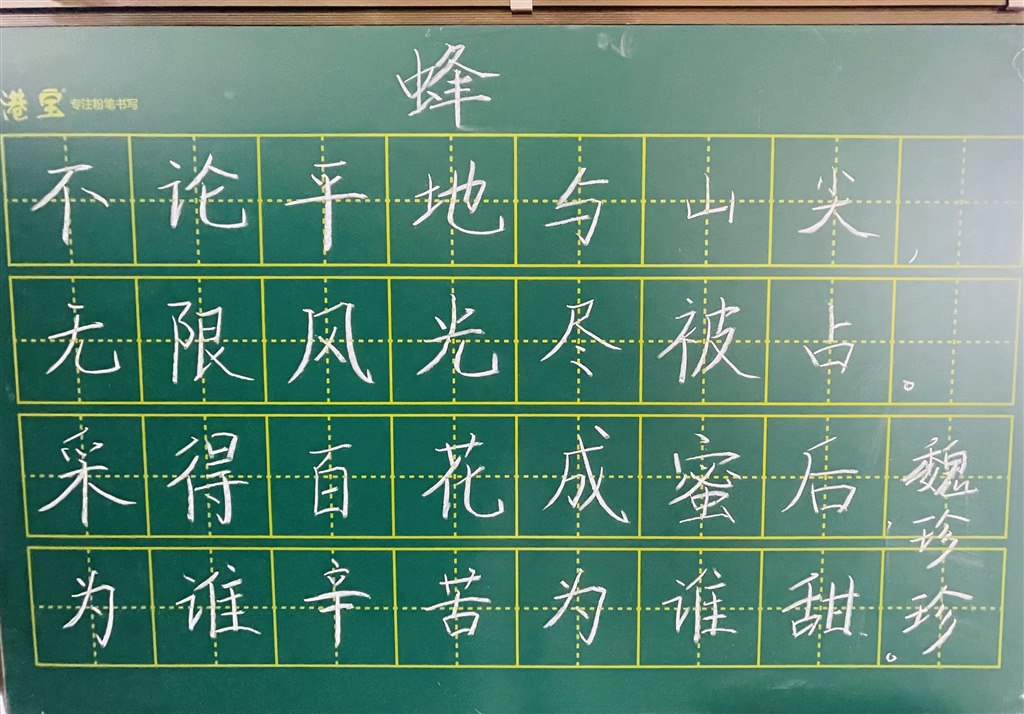 蜂
港宝 专注粉笔书写
不论平地与山尖,
无限风光尽被占。
采得百花成蜜后,
为谁辛苦为谁甜。
魏珍珍